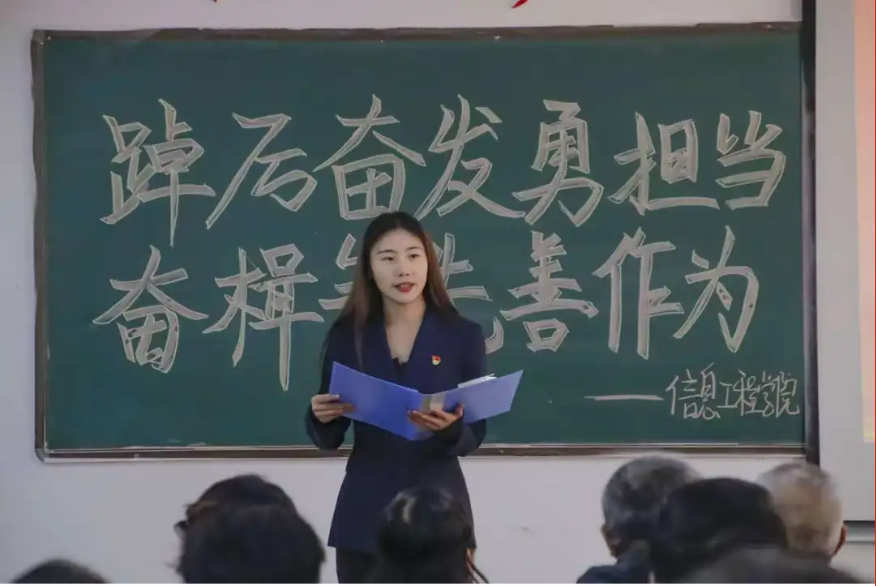 踔厉奋发勇担当
奋楫先善作为
——信息工程学院